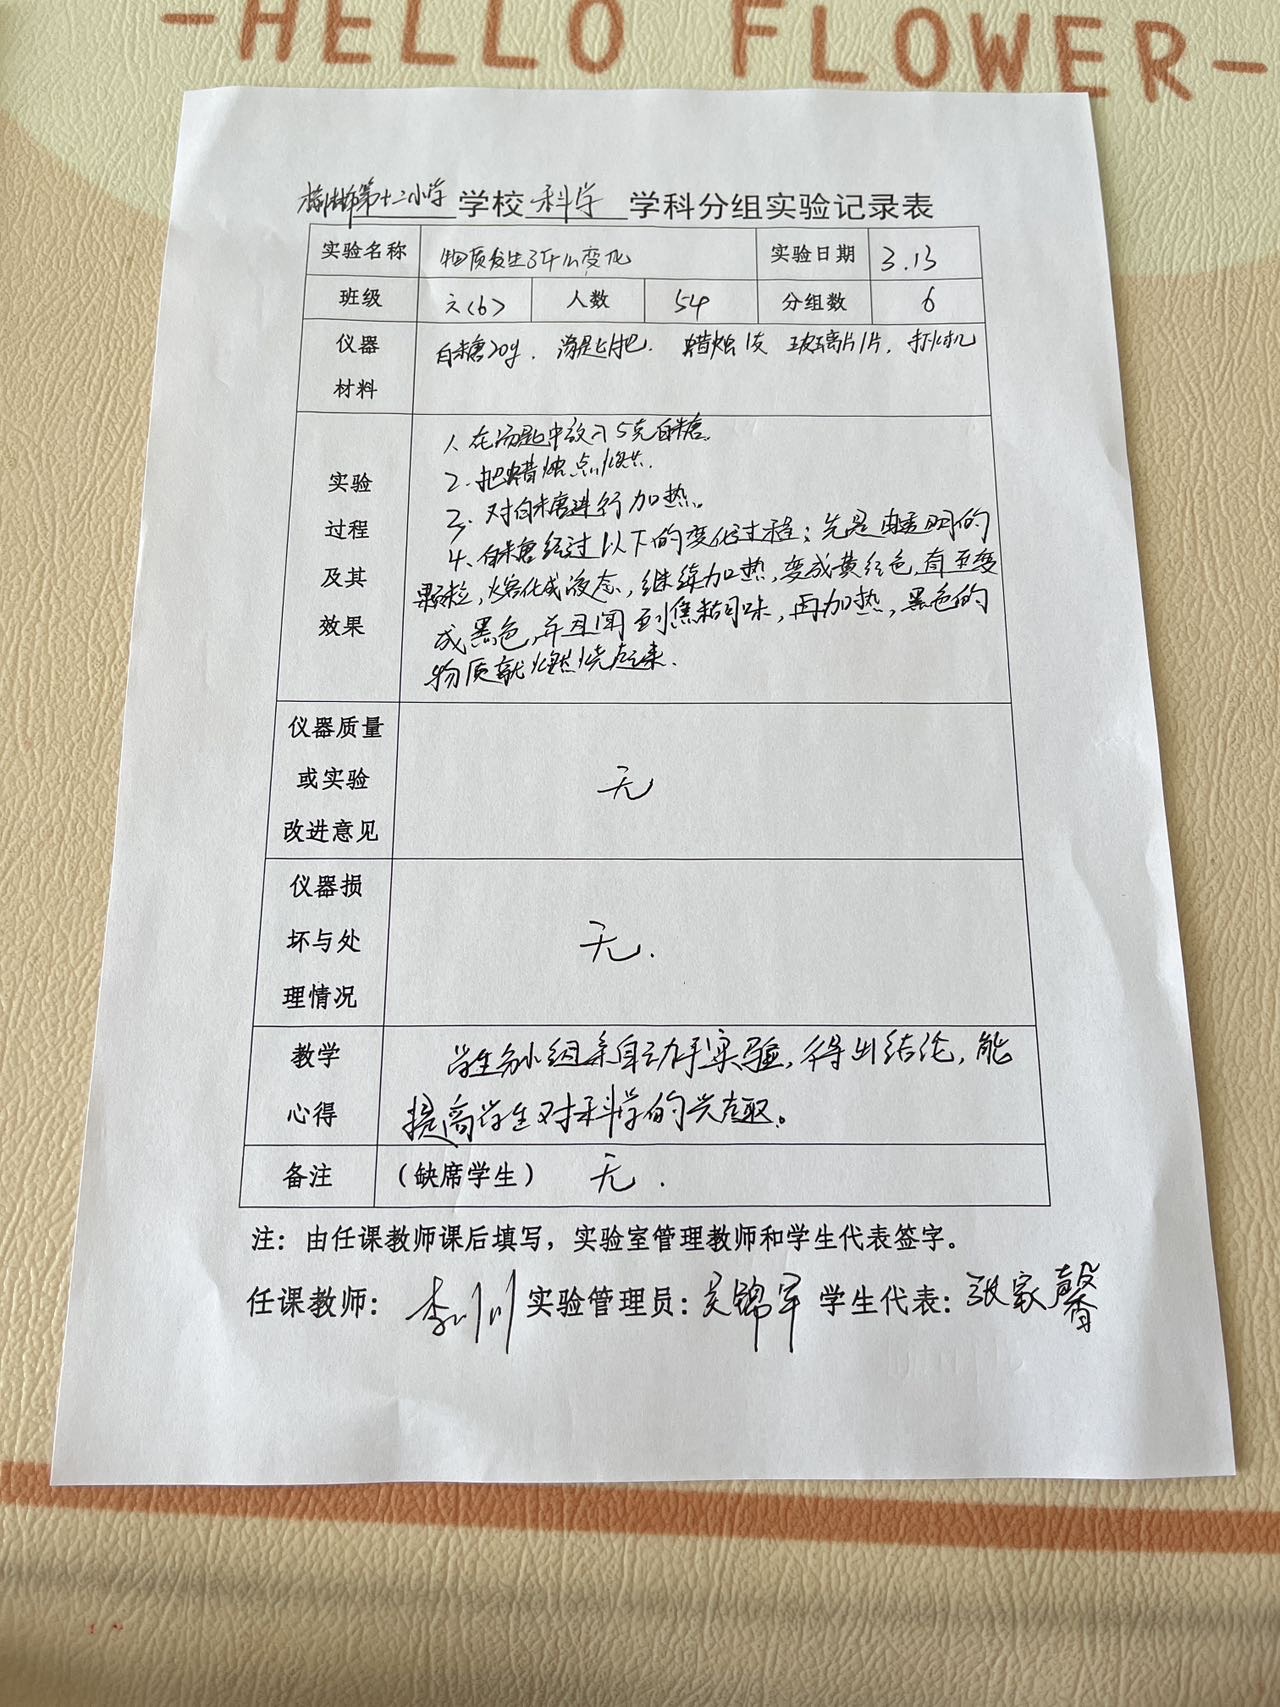 -HELLO FLOWER-
第十二小学 学校 科学 学科分组实验记录表
实验名称 物质发生了什么变化 实验日期 3.13
班级 六(6) 人数 54 分组数 6
仪器材料 白糖20g. 汤匙1把. 蜡烛1支 玻璃片1片. 打火机
实验过程及其效果
1、在汤匙中放入5克白糖.
2、把蜡烛点燃.
3、对白糖进行加热。
4、白糖经过以下的变化过程:先是由透明的
颗粒,熔化成液态,继续加热,变成黄红色,直至变
成黑色,并且闻到焦糊味,再加热,黑色的
物质就燃烧起来.
仪器质量或实验改进意见 无
仪器损坏与处理情况 无.
教学心得
学生分小组亲自动手实验,得出结论,能
提高学生对科学的兴趣。
备注 (缺席学生) 无.
注:由任课教师课后填写,实验室管理教师和学生代表签字。
任课教师: 李川 实验管理员: 吴锦军 学生代表: 张家馨